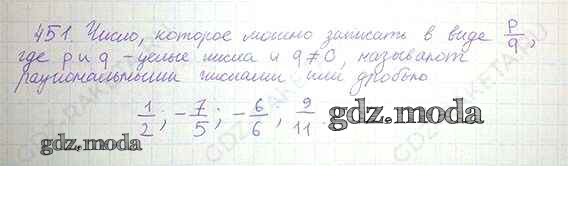 451. Число, которое можно записать в виде p/q,
где p и q - целые числа и q≠0, называют
рациональными числами или дробью
1/2; -7/5; -6/6, 9/11
gdz.moda
gdz.moda